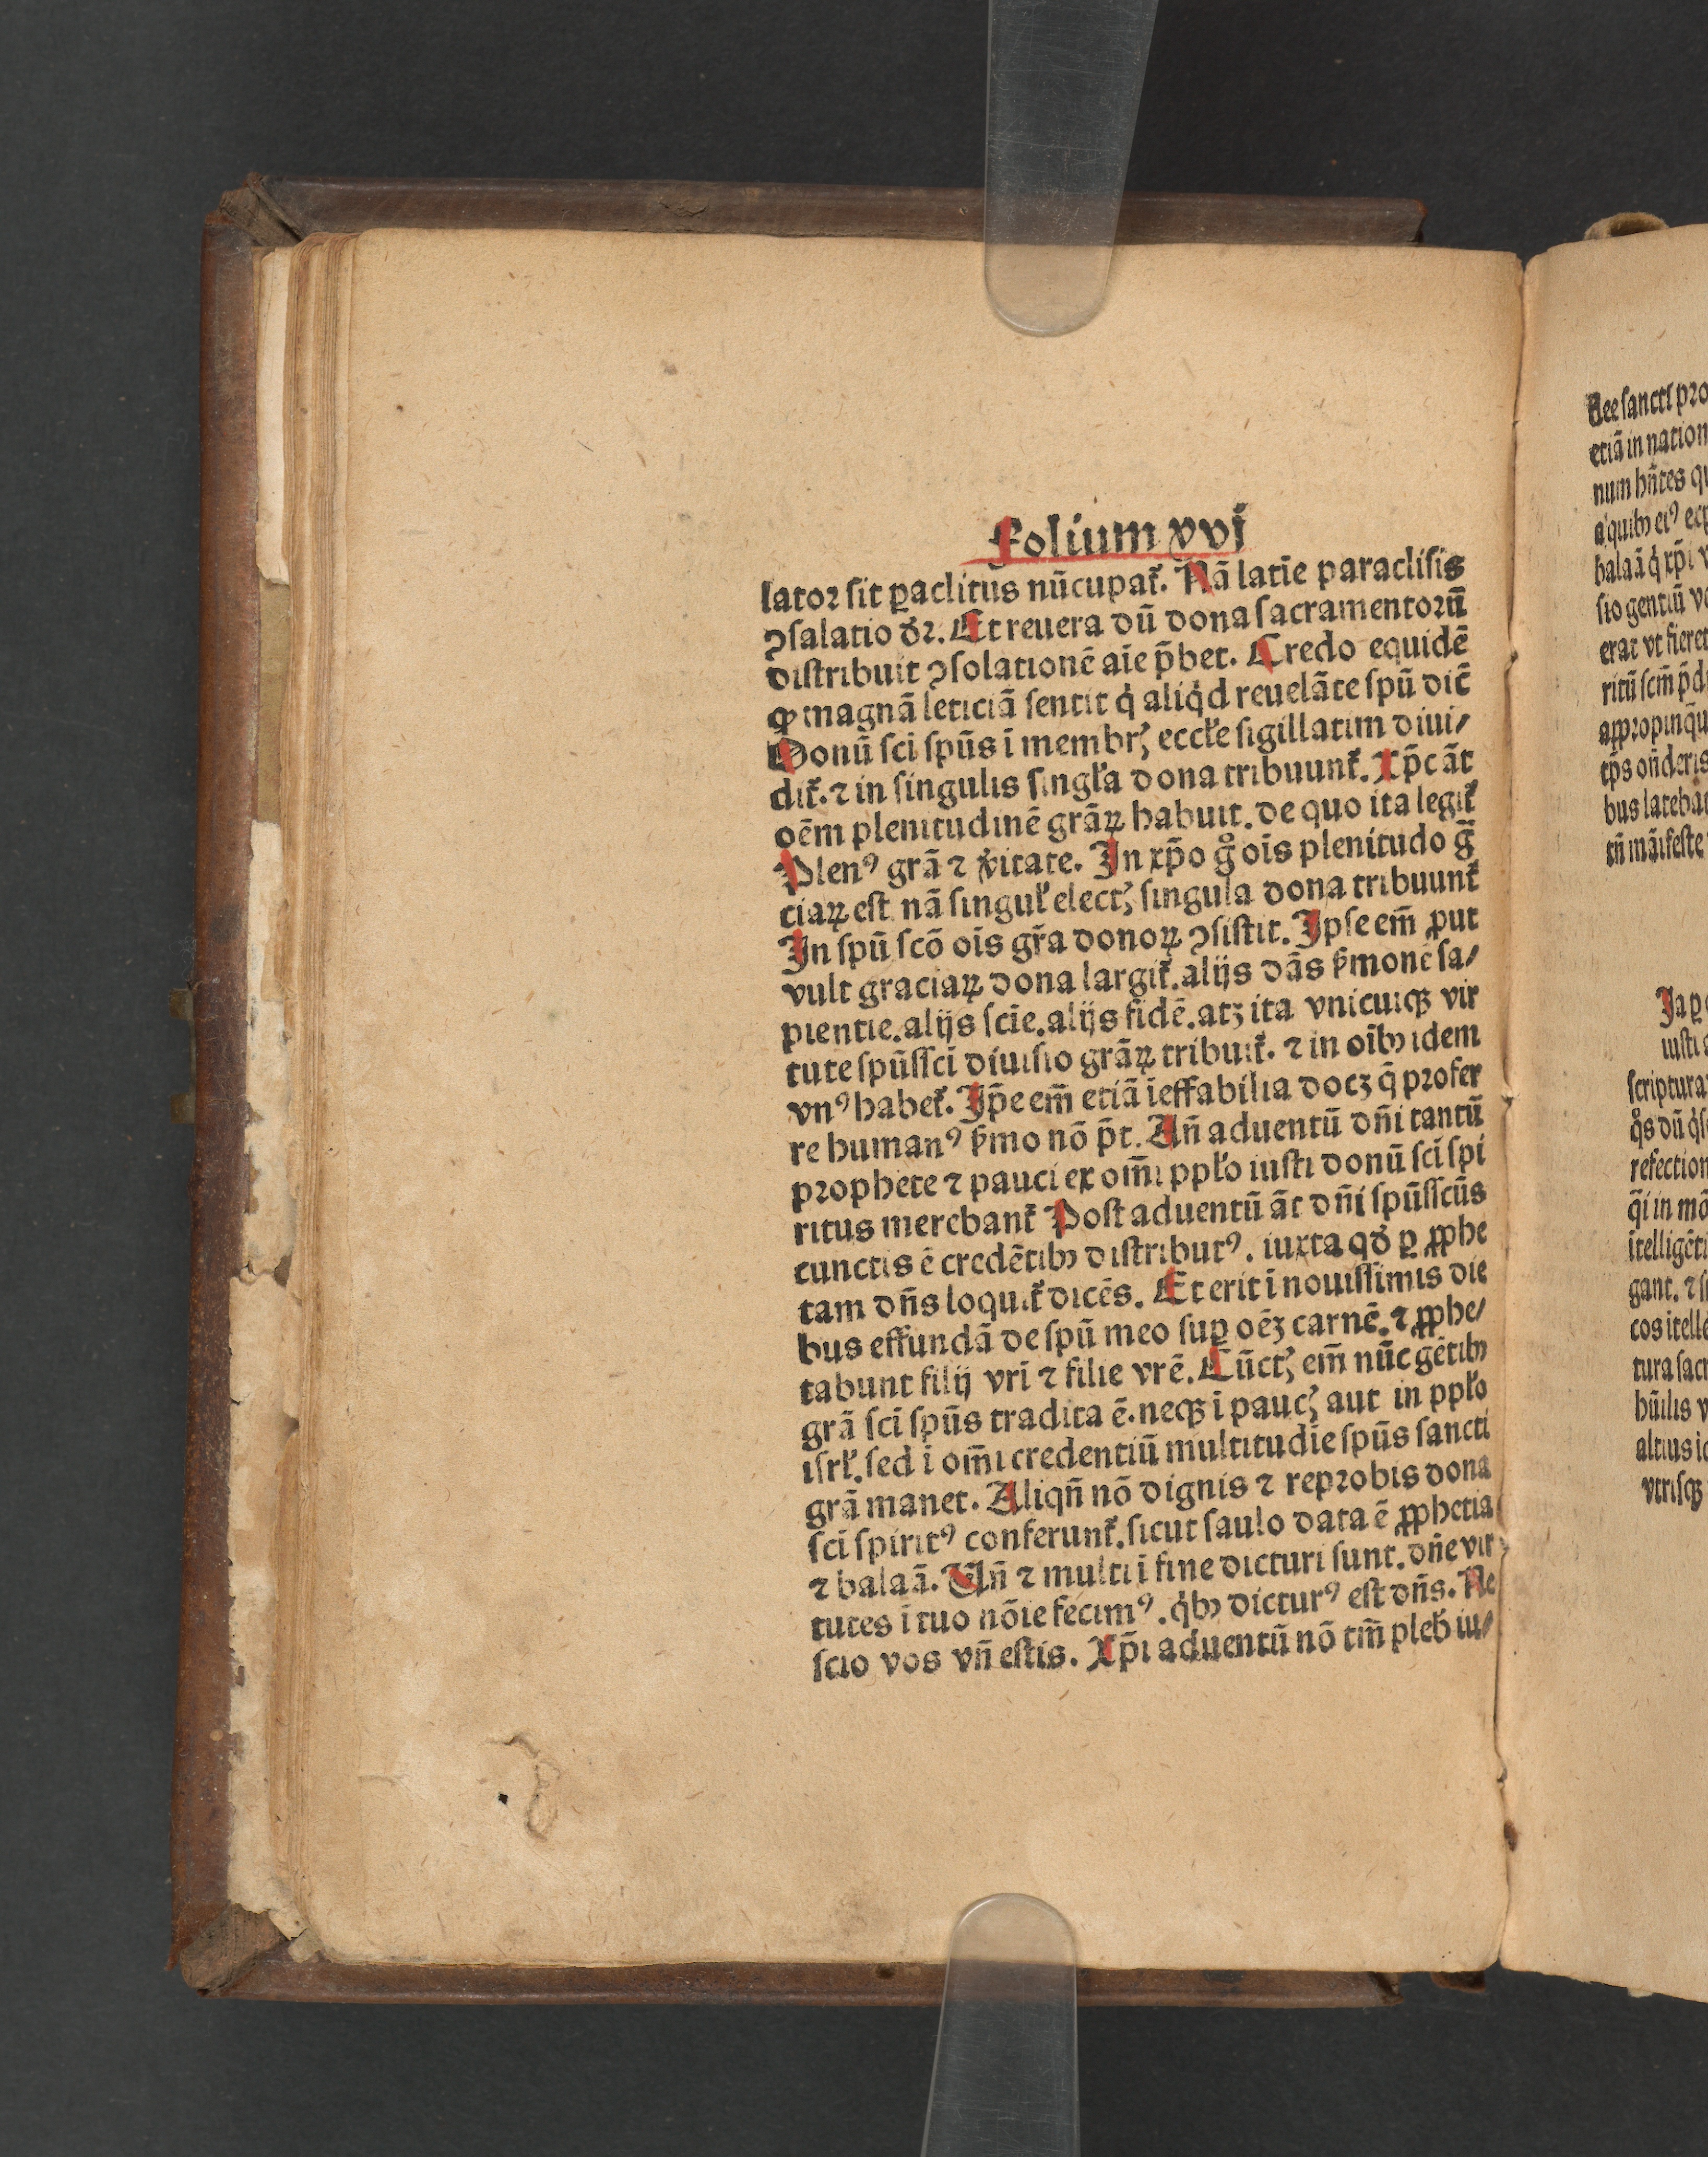 Folium xvi
lator sit ꝑaclitus nūcupat᷑. Nā latīe paraclisis
ꝯsalatio dꝛ. Et reuera dū dona sacramentorū
distribuit ꝯsolationē aīe p̄bet. Credo equidē
ꝙ magnā leticiā sentit q̇ aliq̇d reuelāte spū dic̄
Donū sci spūs ī membrꝭ eccłe sigillatim diui/
dit᷑. ⁊ in singulis singła dona tribuunt᷑. Xp̄c āt
oēm plenitudinē grāꝝ habuit. de quo ita legit᷑
Plenꝰ grā ⁊ v̄itate. In xp̄o g̊ ois plenitudo g̃
ciaꝝ est nā singuł electꝭ singula dona tribuunt᷑
In spū scō ois gr̄a donoꝝ ꝯsistit. Ipse em̄ ꝓut
vult graciaꝝ dona largit᷑. alijs dās ẜmonē sa/
pientie. alijs scīe. alijs fidē. atꝫ ita vnicuiqꝫ vir
tute spūssci diuisio grāꝝ tribuit᷑. ⁊ in oībꝰ idem
vnꝰ habet᷑. Ip̄e em̄ etiā īeffabilia docꝫ q̄ profer
re humanꝰ ẜmo nō p̄t. Añ aduentū dñi tantū
prophete ⁊ pauci ex om̄i ppło iusti donū sci spi
ritus merebant᷑ Post aduentū āt dñi spūsscūs
cunctis ē credētibꝰ distributꝰ. iuxta qđ ꝑ ꝓphe
tam dñs loquit᷑ dicēs. Et erit ī nouissimis die
bus effundā de spū meo suꝑ oēꝫ carnē. ⁊ ꝓphe/
tabunt filij vri ⁊ filie vrē. Cūctꝭ em̄ nūc gētibꝰ
grā sci spūs tradita ē. neqꝫ i paucꝭ aut in ppło
isrł. sed ī om̄i credentiū multitudīe spūs sancti
grā manet. Aliqñ nō dignis ⁊ reprobis dona
sci spiritꝰ conferunt᷑. sicut saulo data ē ꝓphetia
⁊ balaā. Uñ ⁊ multi ī fine dicturi sunt. dñe vir
tutes ī tuo nōie fecimꝰ. q̇bꝰ dicturꝰ est dñs. Ne
scio vos vñ estis. Xp̄i aduentū nō tm̄ pleb iu/
etiā in nation
num hñtes qu
a quibꝰ eiꝰ
balaā q̇ xp̄i v
sio gentiū
erat vt fieret
ritū scm̄
appropinqu
bus latebat
iusti
scriptura
refection
gant. ⁊
tura sacr
vtrisqꝫ